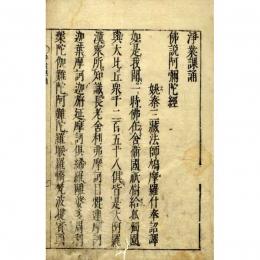 淨業課誦
佛說阿彌陀經
姚秦三藏法師鳩摩羅什奉詔譯
如是我聞一時佛在舍衛國祇樹給孤獨園
與大比丘眾千二百五十人俱皆是大阿羅
漢眾所知識長老舍利弗摩訶目犍連摩訶
迦葉摩訶迦旃延摩訶俱絺羅離婆多周利
槃陀伽難陀阿難陀羅睺羅憍梵波提賓頭